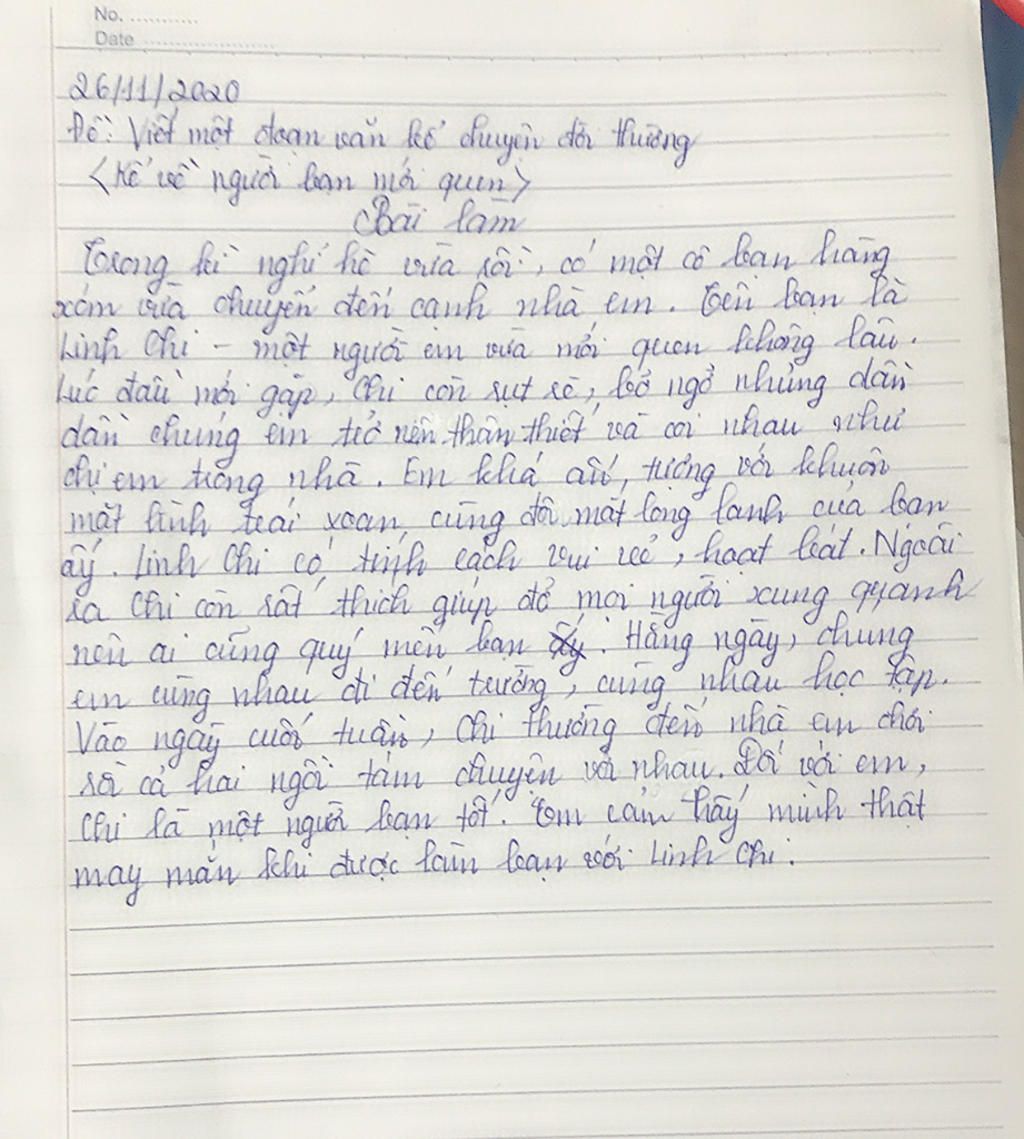 No. ............
Date ........................
26/11/2020
Đề: Viết một đoạn văn kể chuyện đời thường
<Kể về người bạn mới quen>
Bài làm
Trong kì nghỉ hè vừa rồi, có một cô bạn hàng
xóm vừa chuyển đến cạnh nhà em. Tên bạn là
Linh Chi - một người em vừa mới quen không lâu.
Lúc đầu mới gặp, Chi còn sụt sè, bỡ ngỡ nhưng dần
dần chúng em trở nên thân thiết và coi nhau như
chị em trong nhà. Em khá ấn tượng với khuôn
mặt hình trái xoan cùng đôi mắt long lanh của bạn
ấy. Linh Chi có tính cách vui vẻ, hoạt bát. Ngoài
ra Chi còn rất thích giúp đỡ mọi người xung quanh
nên ai cũng quý mến bạn ấy. Hằng ngày, chúng
em cùng nhau đi đến trường, cùng nhau học tập.
Vào ngày cuối tuần, Chi thường đến nhà em chơi
rồi cả hai ngồi tám chuyện với nhau. Đối với em,
Chi là một người bạn tốt. Em cảm thấy mình thật
may mắn khi được làm bạn với Linh Chi.